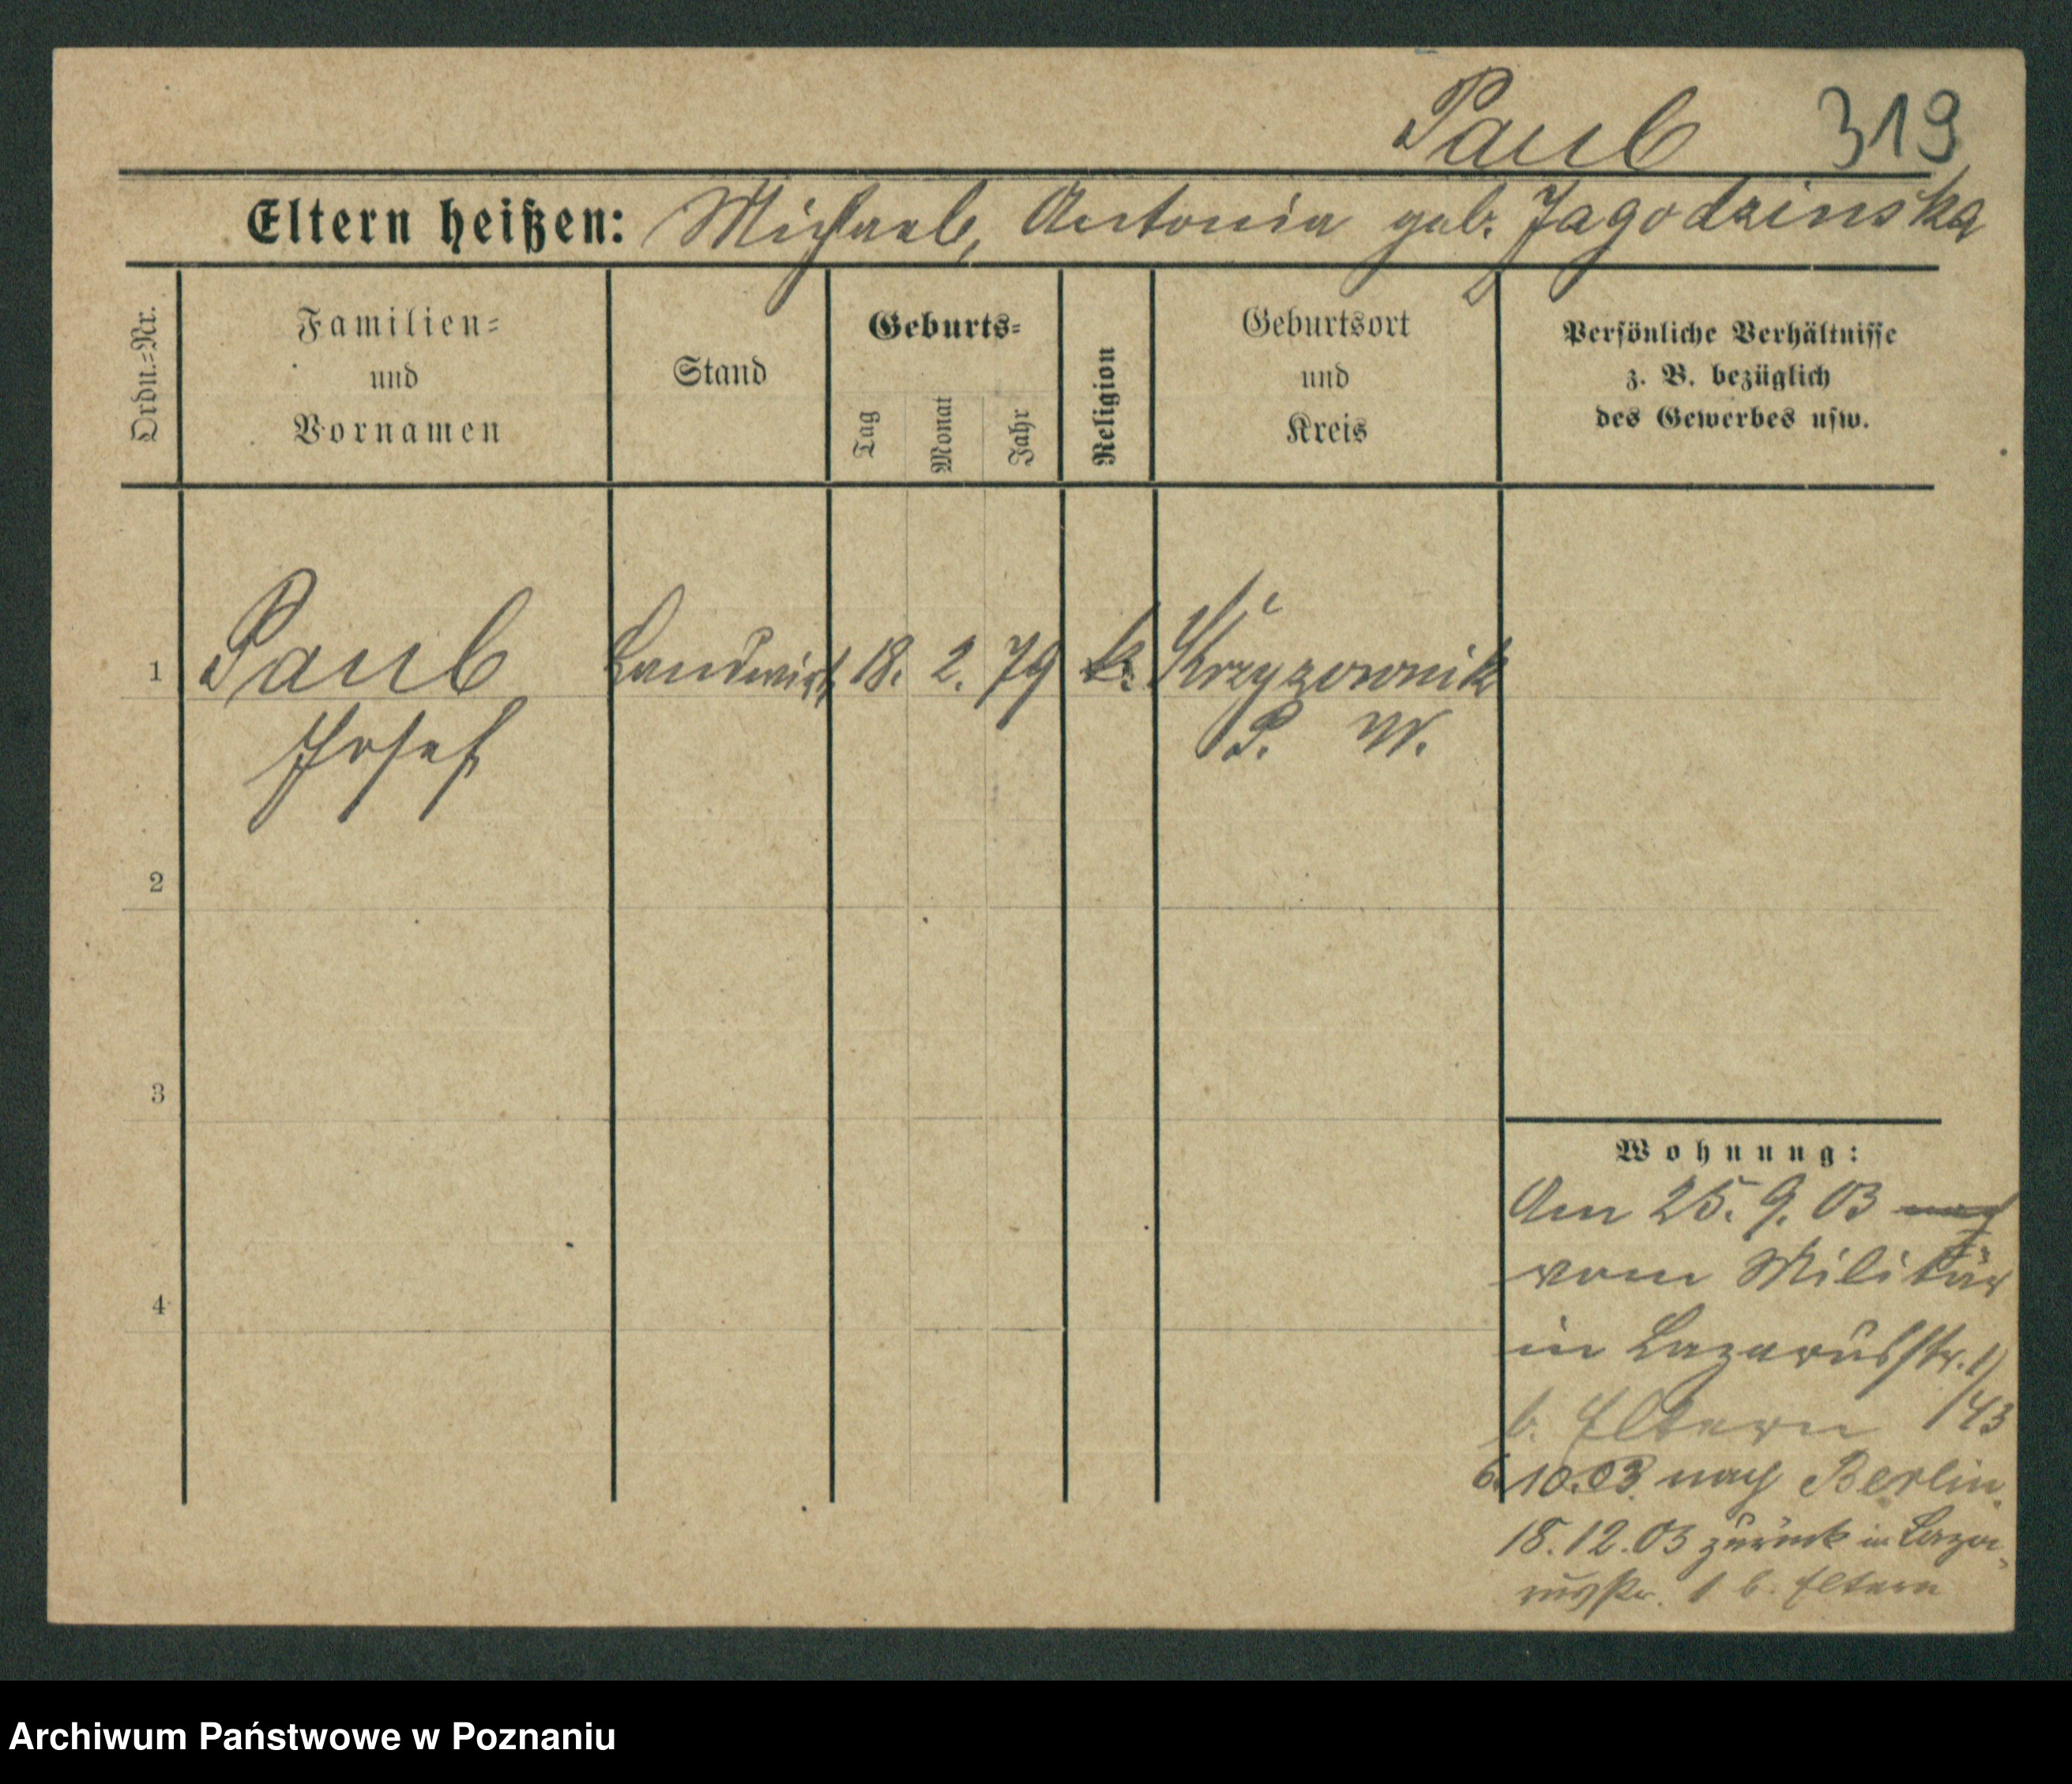 Paul 319
Eltern heißen: Michael, Antonia geb. Jagodzinska
Ordn.=Nr.
Familien=
und
Vornamen
Stand
Geburts=
Tag
Monat
Jahr
Religion
Geburtsort
und
Kreis
Persönliche Verhältnisse
z. B. bezüglich
des Gewerbes usw.
1 Paul Landwirt 18. 2. 79 k. Krzyzownik
Josef P. W.
2
3
4
Wohnung:
Am 25. 9. 03 nach
vom Militär
in Lazarusstr. 1)
b. Eltern /43
6. 10. 03. nach Berlin.
18. 12. 03 zurück in Laza-
russtr. 1 b. Eltern
Archiwum Państwowe w Poznaniu